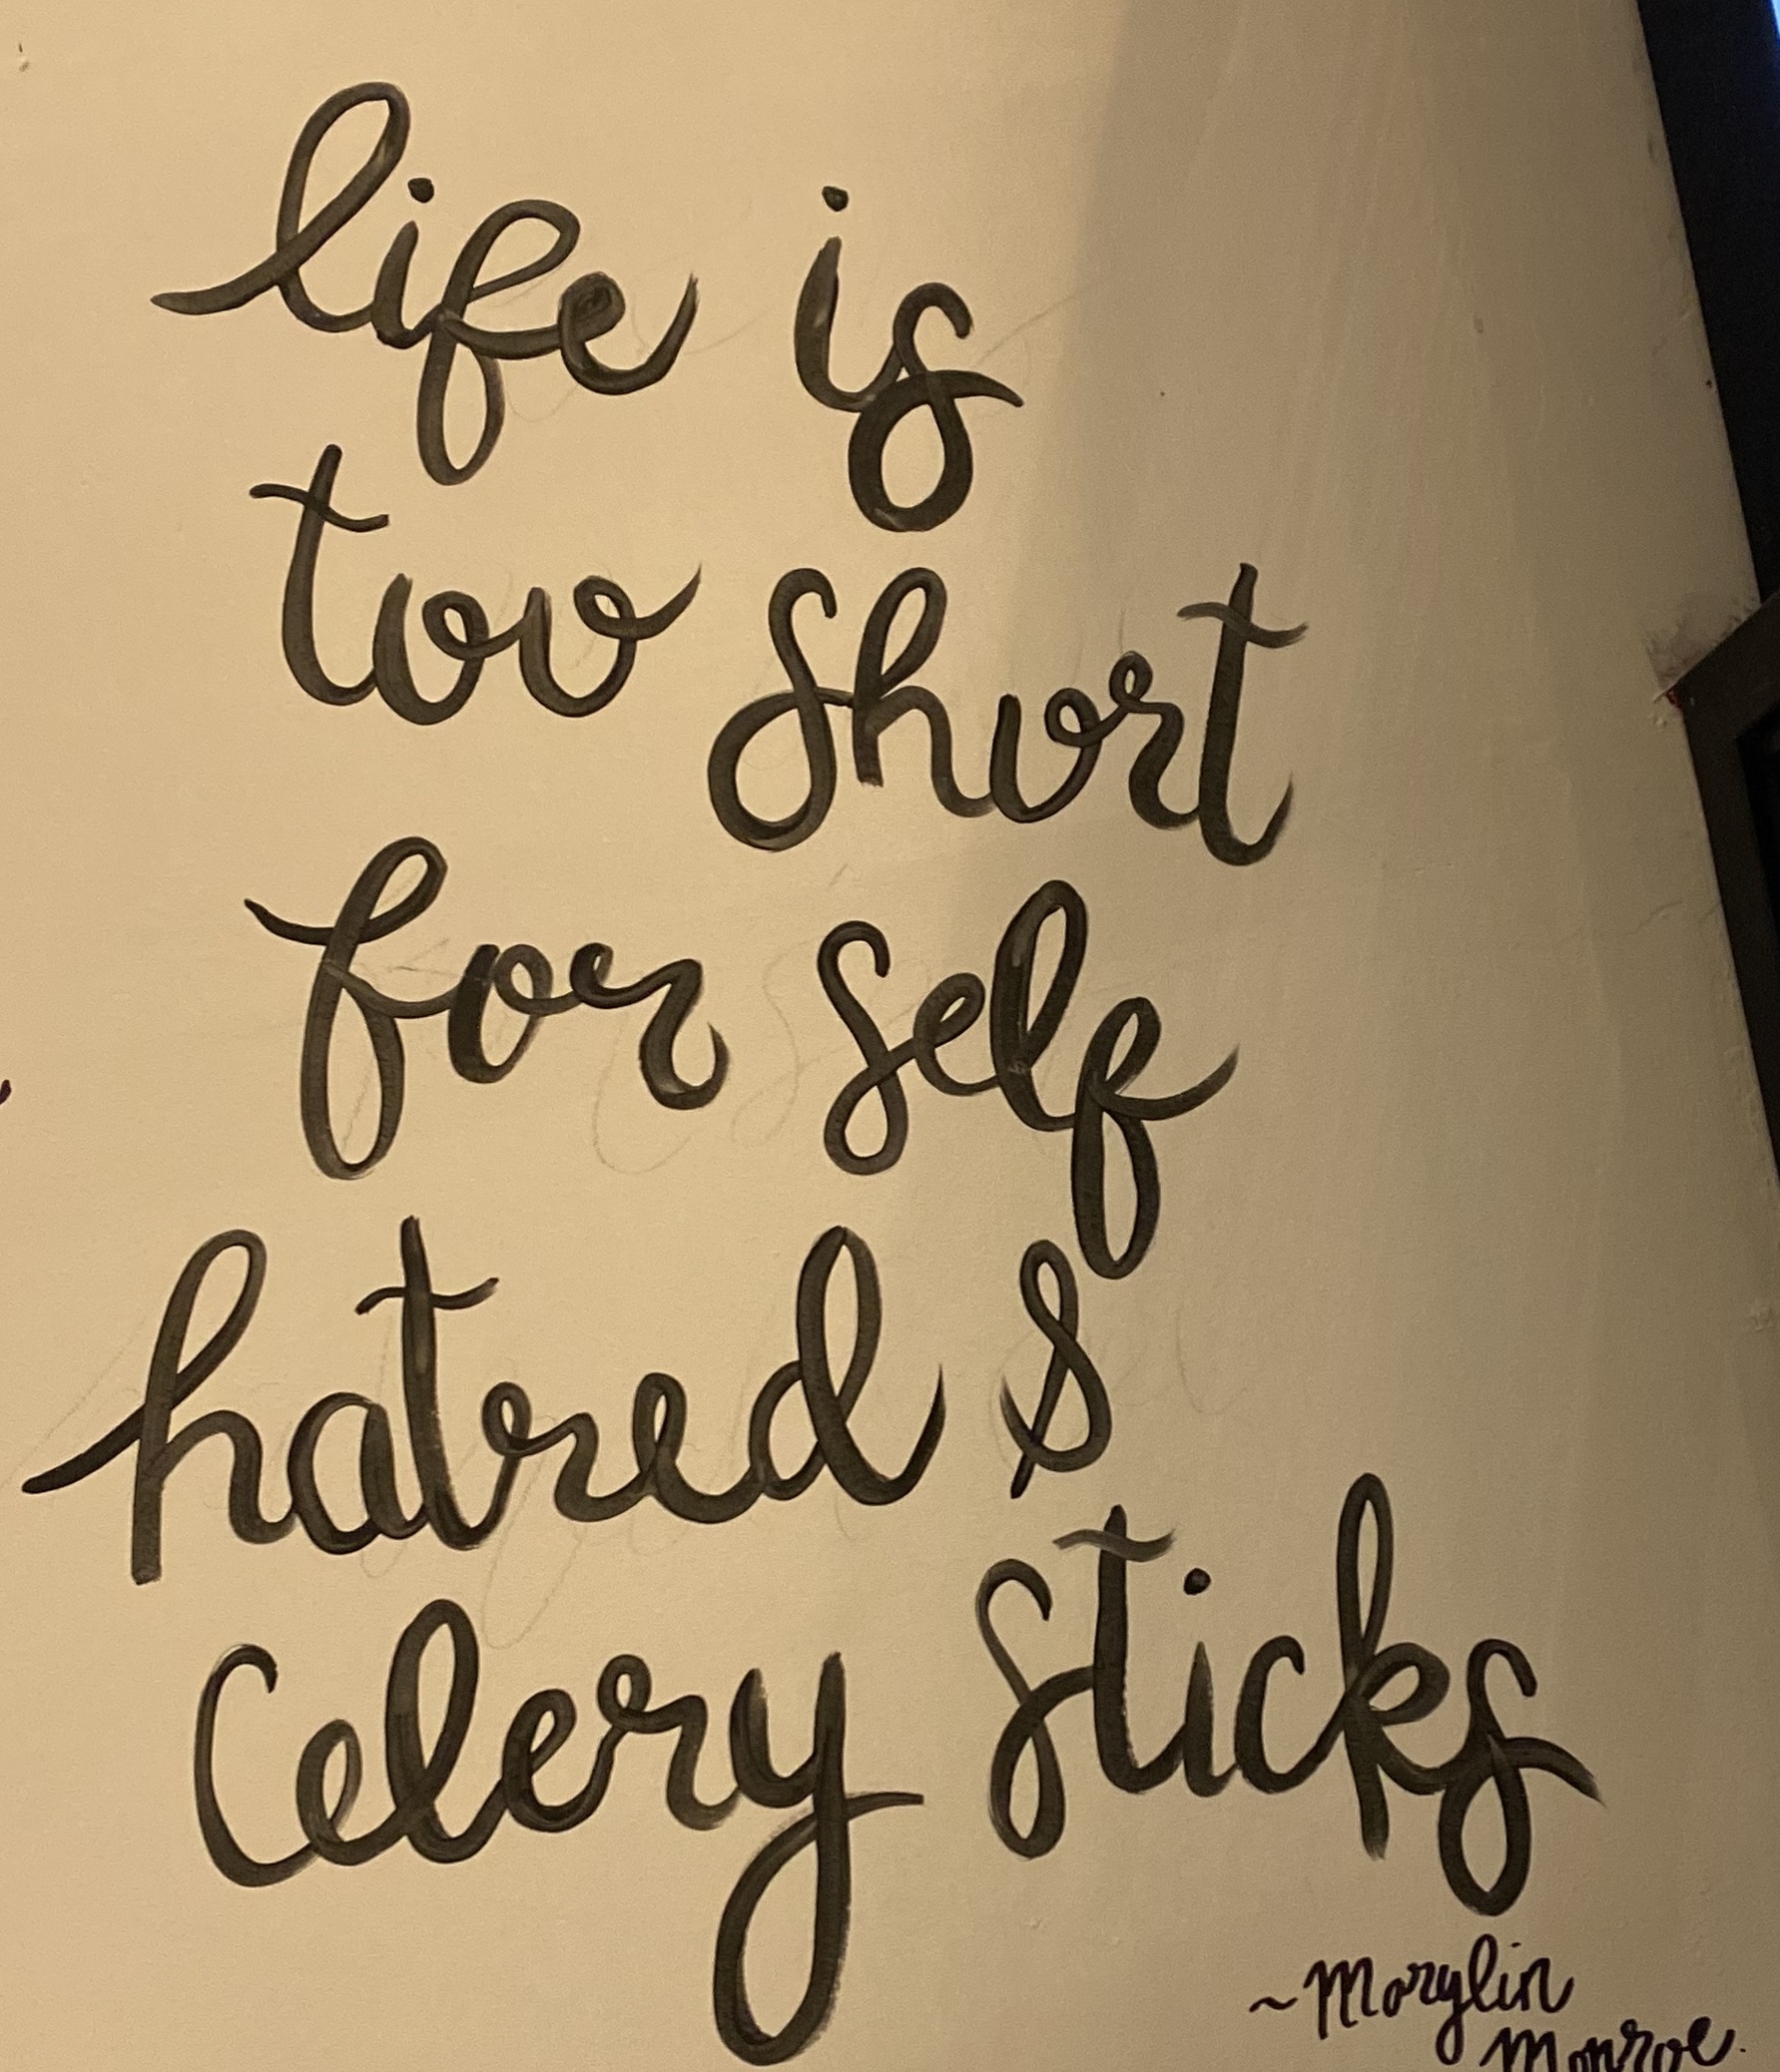 life is
too short
for self
hatred &
Celery sticks
~Marylin
Monroe.